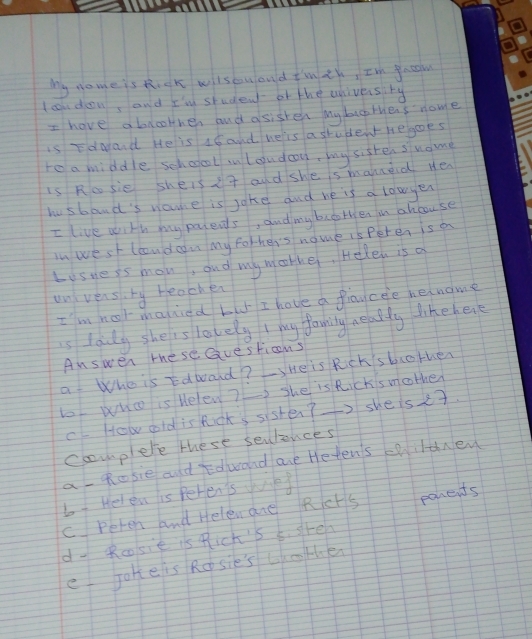 My name is Rick wilson and I'm 24, I'm from
london, and I'm student at the university
I have a brother and a sister my brother's name
is Edward He is 16 and he is a student He goes
to a middle school in london, my sister's name
is Rosie she is 27 and she is married Her
husband's name is joke and he is a lawyer
I live with my parents, and my brother in a house
in west london my father's name is Peter is a
busness man, and my mother, Helen is a
university teacher
I'm not married but I have a fiancée her name
is she is lovely my family really like here
Answer these Questions
a- Who is Edward? → He is Rick's brother
b- Who is Helen? → She is Rick's mother
c- How old is Rick's sister? → she is 27.
Complete these sentences
a- Rosie and Edward are Helen's children
b- Helen is Peter's wif
c- Peter and Helen are Rick's parents
d- Rosie is Rick's sister
e- joke is Rosie's brother